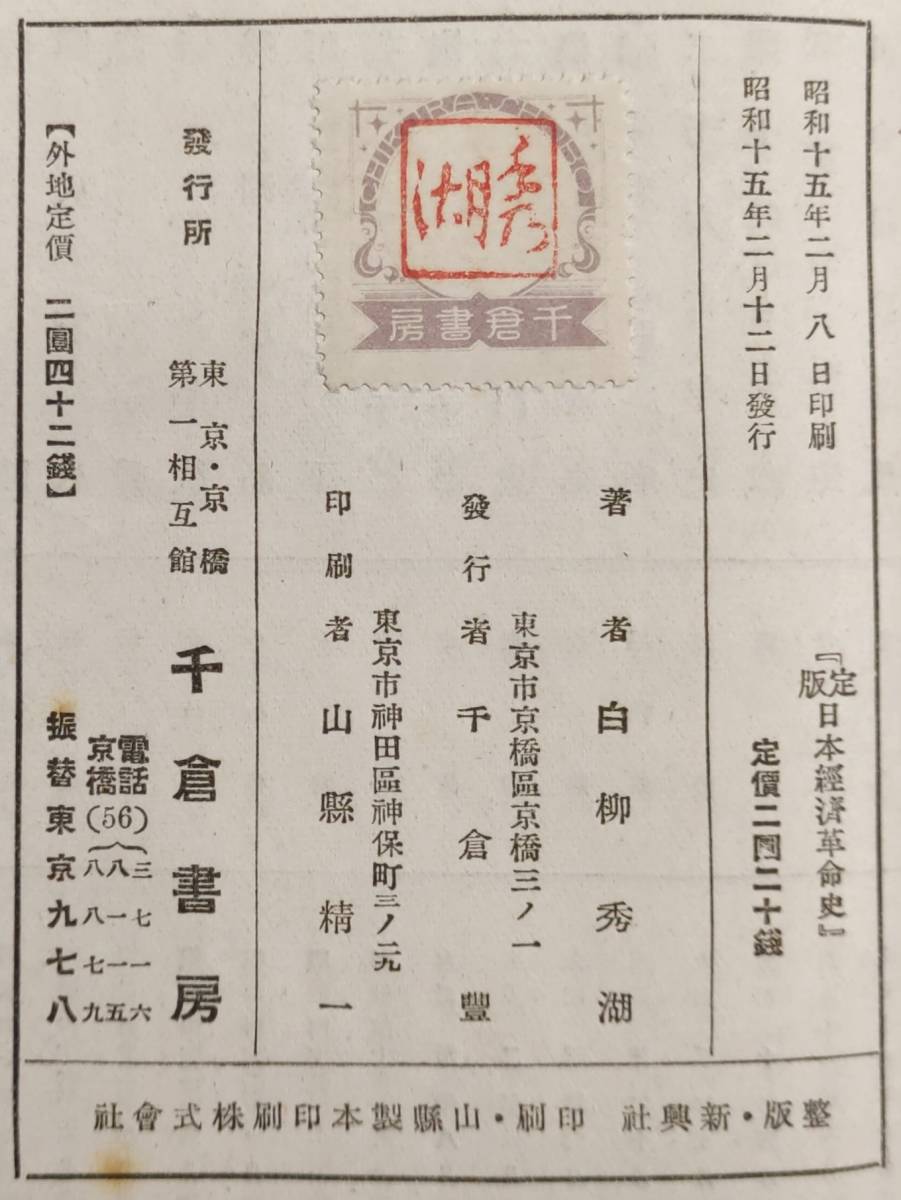 昭和十五年二月八日印刷
昭和十五年二月十二日發行
『定版日本經濟革命史』
定價二圓二十錢
CHIKURA・SHOBO
秀湖
千倉書房
著者白柳秀湖
東京市京橋區京橋三ノ一
發行者千倉豐
東京市神田區神保町三ノ二九
印刷者山縣精一
發行所
東京・京橋
第一相互館
千倉書房
電話
京橋(56)
三七一六
八一一五
八八七九
振替東京九七八
【外地定價 二圓四十二錢】
整版・新興社 印刷・山縣製本印刷株式會社